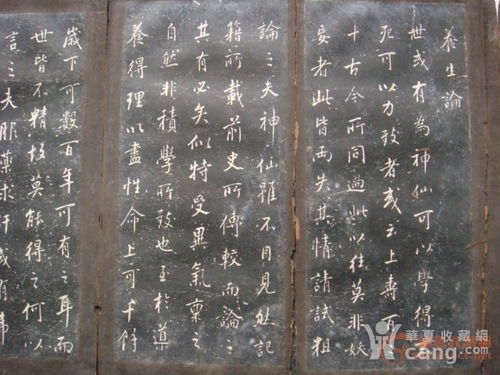 養生論
世或有為神仙可以學得不
死可以力致者或云上壽百
十古今所同過此以往莫非妖
妄者此皆兩失其情請試粗
論之夫神仙雖不目見然記
籍所載前史所傳較而論之
其有必矣似特受異氣稟之
自然非積學所致也至於導
養得理以盡性命上可千餘
歲下可數百年可有之耳而
世皆不精故莫能得之何以
言之夫服藥求汗或有弗
華夏收藏網
cang.com